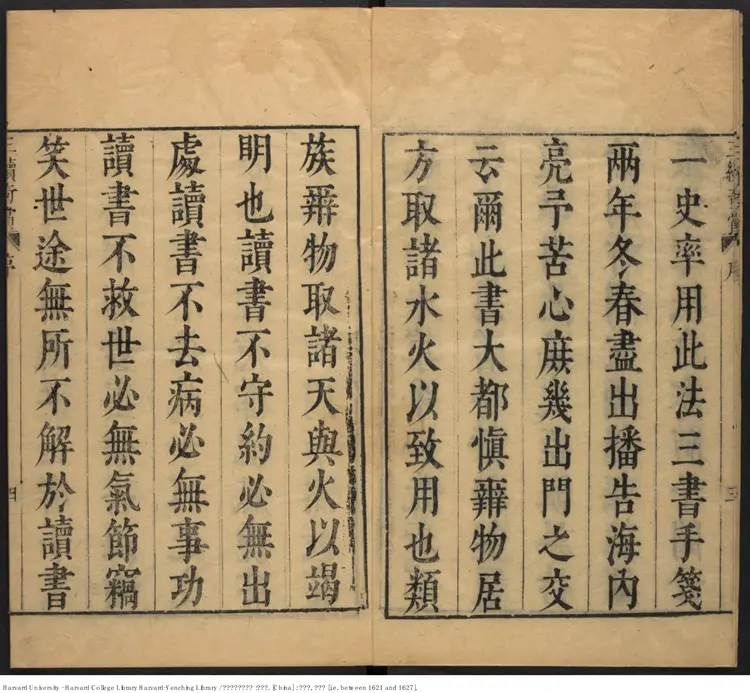 一史率用此法三書手箋
兩年冬春盡出播告海內
亮予苦心庶幾出門之交
云爾此書大都慎辨物居
方取諸水火以致用也類
族辨物取諸天與火以竭
明也讀書不守約必無出
處讀書不去病必無事功
讀書不救世必無氣節竊
笑世途無所不解於讀書
四
Harvard University - Harvard College Library Harvard-Yenching Library / ???????? : ???, [China] : ???, ??? [i.e. between 1621 and 1627].